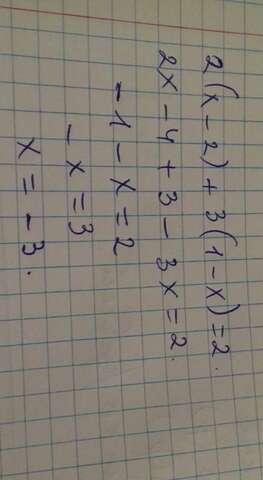 2(x-2)+3(1-x)=2.
2x-4+3-3x=2.
-1-x=2
-x=3
x=-3.